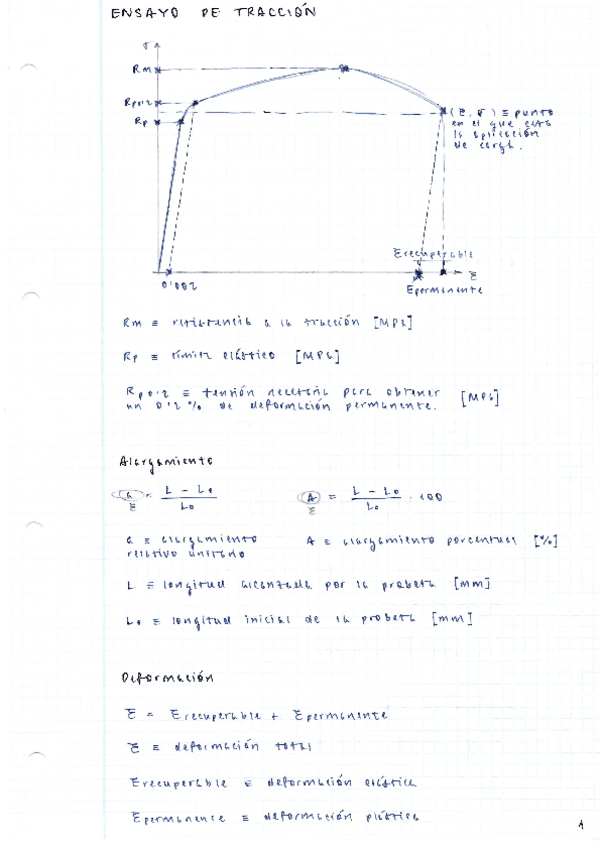 ENSAYO DE TRACCIÓN
σ
Rm
Rp0'2
Rp
(ε, σ) ≡ punto
en el que cesa
la aplicación
de carga.
0'002
εrecuperable
ε
εpermanente
Rm ≡ resistencia a la tracción [MPa]
Rp ≡ límite elástico [MPa]
Rp0'2 ≡ tensión necesaria para obtener
un 0'2 % de deformación permanente. [MPa]
Alargamiento
a = (L - L0) / L0
ε
A = (L - L0) / L0 · 100
ε
a ≡ alargamiento
relativo unitario
A ≡ alargamiento porcentual [%]
L ≡ longitud alcanzada por la probeta [mm]
L0 ≡ longitud inicial de la probeta [mm]
Deformación
ε = εrecuperable + εpermanente
ε ≡ deformación total
εrecuperable ≡ deformación elástica
εpermanente ≡ deformación plástica
1